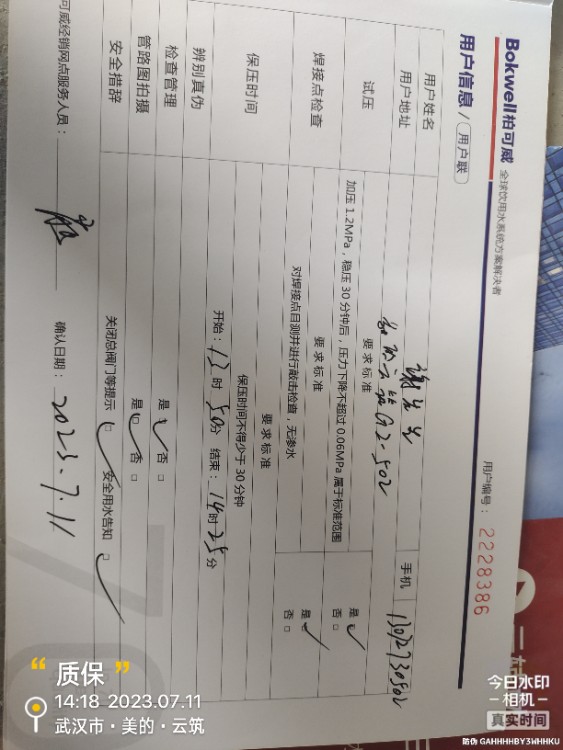 Bokwell柏可威 全球饮用水系统方案解决者
用户信息/用户联
用户编号：2228386
用户姓名 谢先生 手机 13012730502
用户地址 美的云筑G2-502
试压 要求标准
加压 1.2MPa，稳压 30 分钟后，压力下降不超过 0.06MPa 属于标准范围
是 ✓
否 □
焊接点检查 要求标准
对焊接点目测并进行敲击检查，无渗水
是 ✓
否 □
保压时间 要求标准
保压时间不得少于 30 分钟
开始：13时 50分 结束：14时 25分
辨别真伪
检查管理 是 ✓ 否 □
管路图拍摄 是□ ✓ 否 □
安全措辞 关闭总阀门等提示 □ ✓ 安全用水告知 □ ✓
可威经销网点服务人员：
确认日期：2023.7.11
“质保”
14:18 2023.07.11
武汉市·美的·云筑
今日水印
-相机-
真实时间
防伪 GAHHHHBY3WHHKU